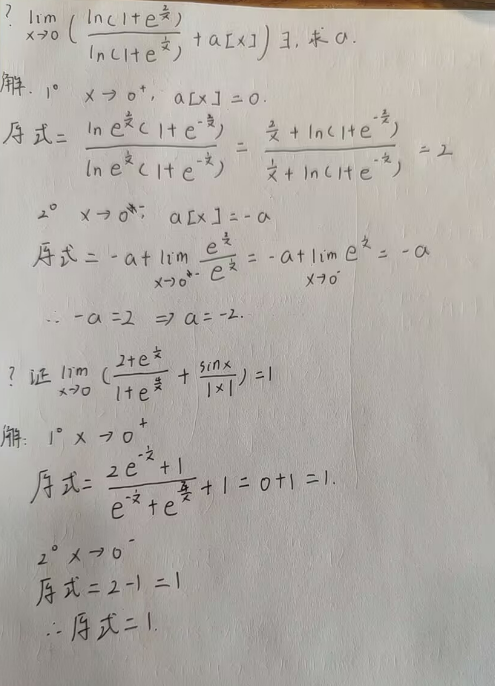 ? lim x→0 ( ln(1+e^(2/x)) / ln(1+e^(1/x)) + a[x] ) ∃, 求 a.
解. 1° x→0⁺, a[x]=0.
原式 = ln e^(2/x)(1+e^(-2/x)) / ln e^(1/x)(1+e^(-1/x)) = (2/x + ln(1+e^(-2/x))) / (1/x + ln(1+e^(-1/x))) = 2
2° x→0⁻, a[x]=-a
原式 = -a+ lim x→0⁻ e^(2/x) / e^(1/x) = -a+ lim x→0⁻ e^(1/x) = -a
∴ -a=2 ⇒ a=-2.
? 证 lim x→0 ( (2+e^(1/x)) / (1+e^(4/x)) + sinx / |x| ) =1
解: 1° x→0⁺
原式 = (2e^(-1/x)+1) / (e^(-1/x)+e^(3/x)) +1 = 0+1 = 1.
2° x→0⁻
原式 = 2-1 = 1
∴ 原式 = 1.